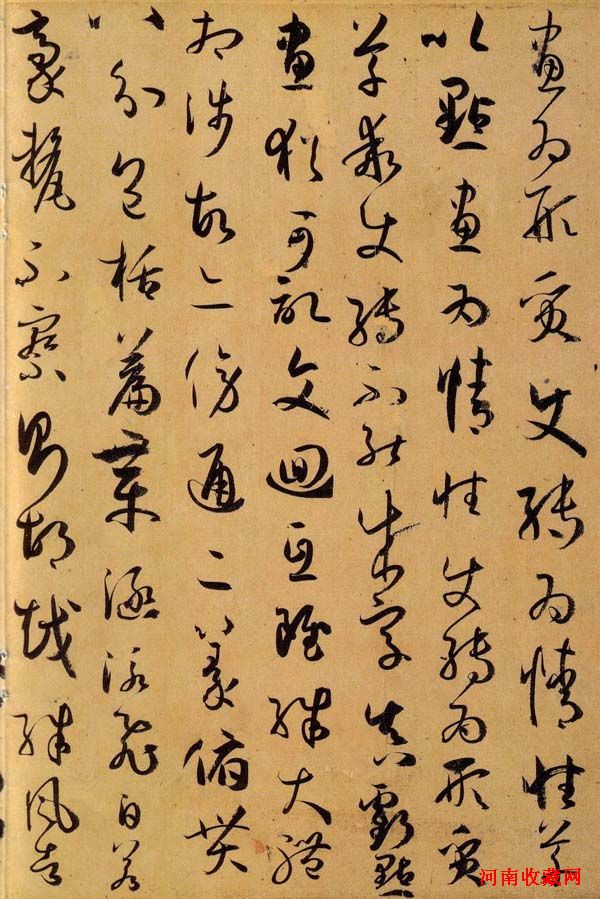 畫為形質使轉為情性草
以點畫為情性使轉為形質
草乖使轉不能成字真虧點
畫猶可記文迴互雖殊大體
相涉故亦傍通二篆俯貫
八分包括篇章涵泳飛白若
豪釐不察則胡越殊風者
河南收藏网